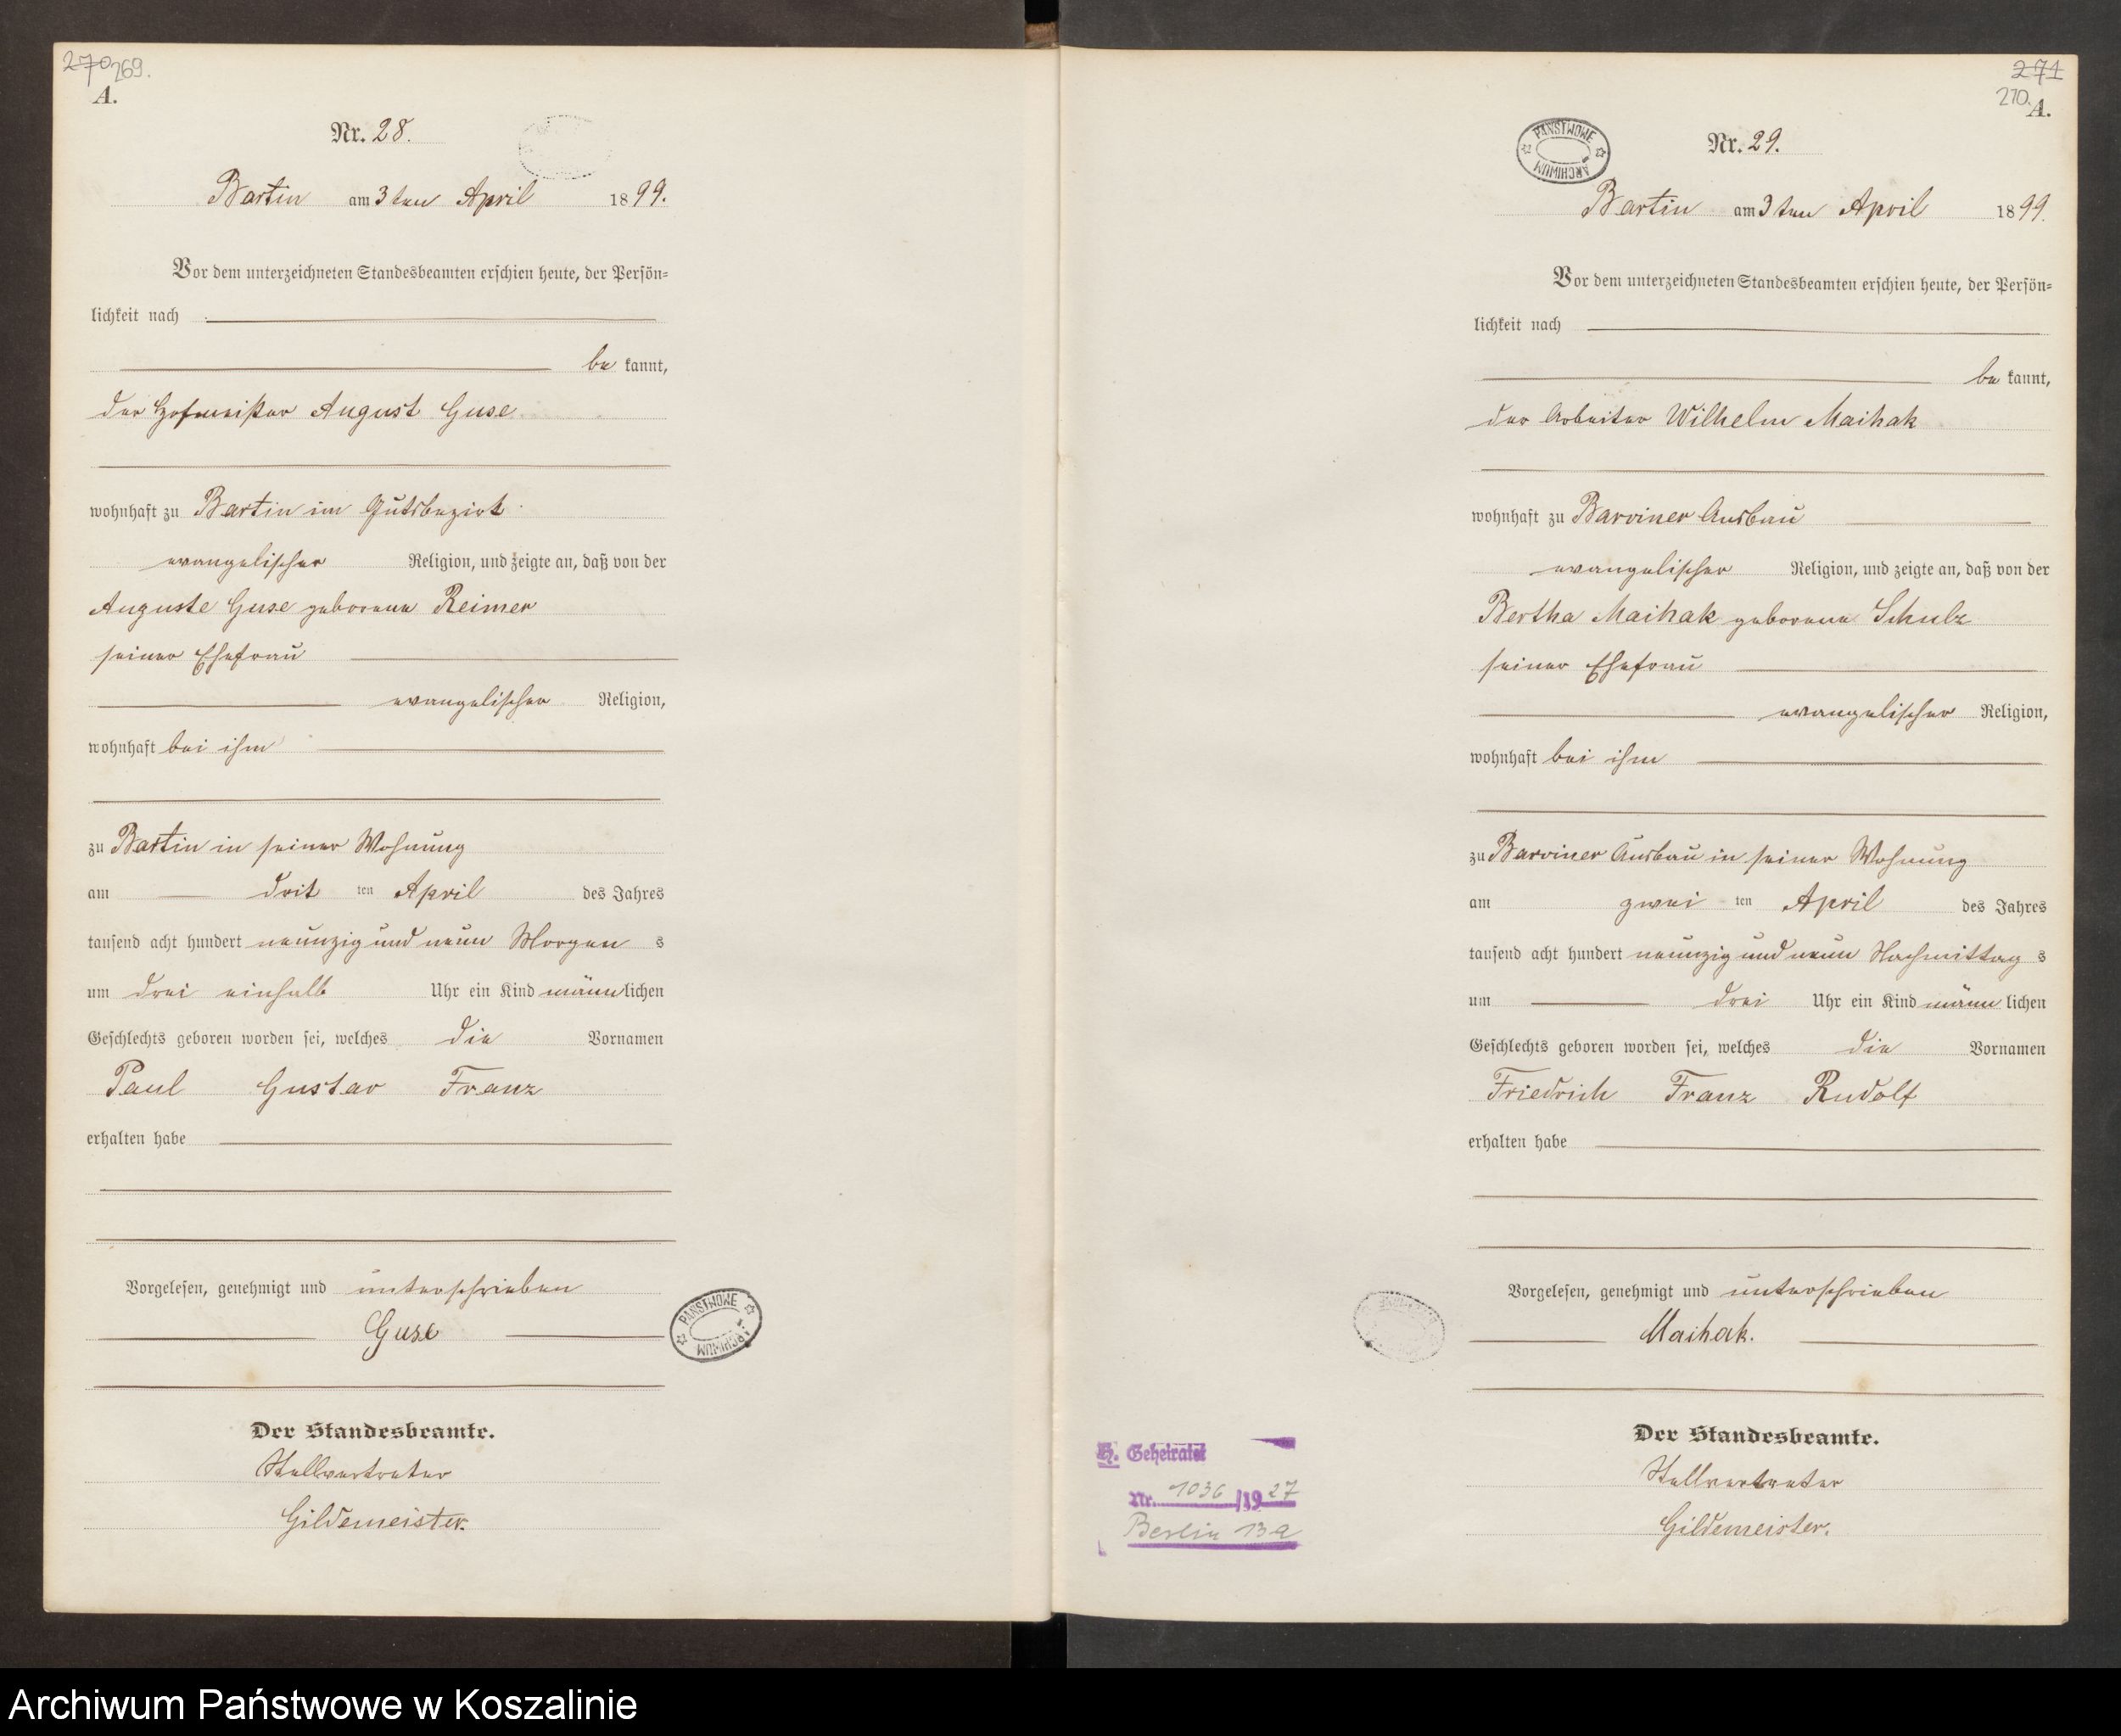 270 269.
A.
Nr. 28.
Bartin am 3ten April 1899.
Vor dem unterzeichneten Standesbeamten erschien heute, der Persön=
lichkeit nach
be kannt,
der Hofmeister August Guse
wohnhaft zu Bartin im Gutsbezirk
evangelischer Religion, und zeigte an, daß von der
Auguste Guse geborene Reimer
seiner Ehefrau
evangelischer Religion,
wohnhaft bei ihm
zu Bartin in seiner Wohnung
am drit ten April des Jahres
tausend acht hundert neunzig und neun Morgen s
um drei einhalb Uhr ein Kind männlichen
Geschlechts geboren worden sei, welches die Vornamen
Paul Gustav Franz
erhalten habe
Vorgelesen, genehmigt und unterschrieben
Guse
PAŃSTWOWE ARCHIWUM
Der Standesbeamte.
Stellvertreter
Gildemeister.
271
270. A.
PAŃSTWOWE ARCHIWUM
Nr. 29.
Bartin am 3ten April 1899.
Vor dem unterzeichneten Standesbeamten erschien heute, der Persön=
lichkeit nach
be kannt,
der Arbeiter Wilhelm Maihak
wohnhaft zu Barviner Ausbau
evangelischer Religion, und zeigte an, daß von der
Bertha Maihak geborene Schulz
seiner Ehefrau
evangelischer Religion,
wohnhaft bei ihm
zu Barviner Ausbau in seiner Wohnung
am zwei ten April des Jahres
tausend acht hundert neunzig und neun Nachmittag s
um drei Uhr ein Kind männ lichen
Geschlechts geboren worden sei, welches die Vornamen
Friedrich Franz Rudolf
erhalten habe
Vorgelesen, genehmigt und unterschrieben
Maihak.
Der Standesbeamte.
Stellvertreter
Gildemeister.
H. Geheiratet
Nr. 1036 /19 27
Berlin 13a
Archiwum Państwowe w Koszalinie